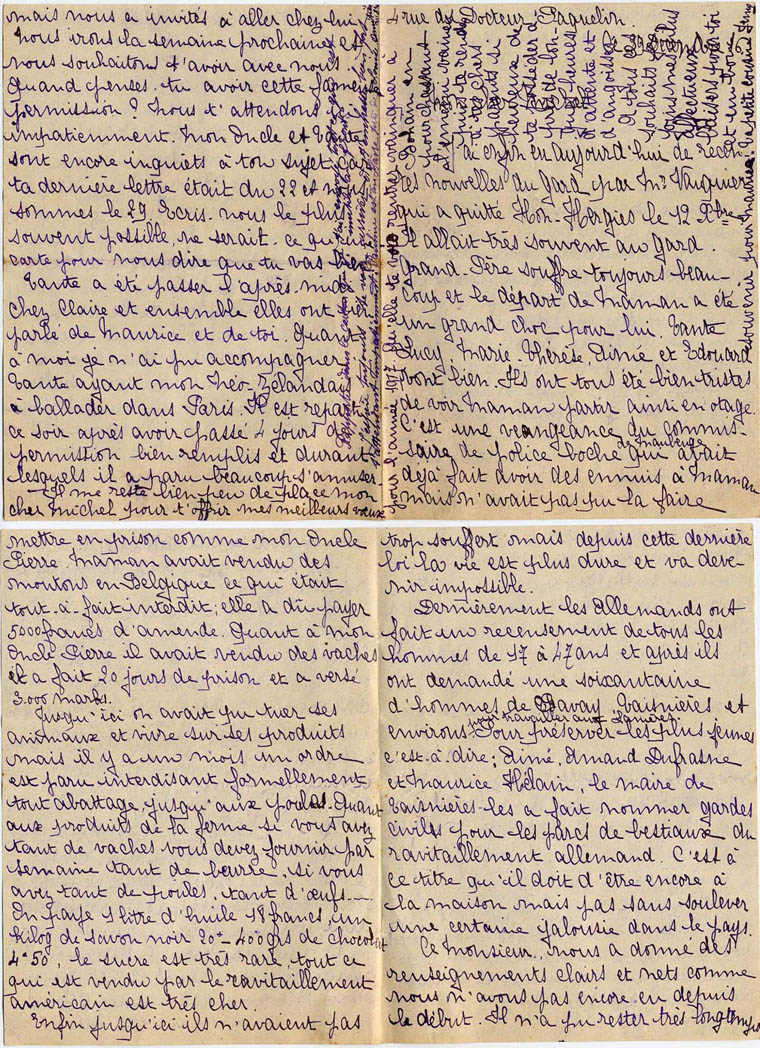 4 rue du Docteur Paquelin.
J'ai enfin eu aujourd'hui de récen-
tes nouvelles du Gard par Mr Vauquier
qui a quitté Hon-Hergies le 12 Xbre
Il allait très souvent au Gard.
Grand-Père souffre toujours beau-
coup et le départ de Maman a été
un grand choc pour lui. Tante
Lucy, Marie-Thérèse, Aimé et Edouard
vont bien. Ils ont tous été bien tristes
de voir Maman partir ainsi en otage.
C'est une vengeance du commis-
saire de police boche de Maubeuge qui avait
déjà fait avoir des ennuis à Maman
mais n'avait pas pu la faire
mettre en prison comme mon Oncle
Pierre. Maman avait vendu des
moutons en Belgique ce qui était
tout-à-fait interdit; elle a dû payer
5000 francs d'amende. Quant à mon
Oncle Pierre il avait vendu des vaches
il a fait 20 jours de prison et a versé
3.000 marks.
Jusqu'ici on avait pu tuer ses
animaux et vivre sur ses produits
mais il y a un mois un ordre
est paru interdisant formellement
tout abattage jusqu'aux poules. Quant
aux produits de la ferme si vous avez
tant de vaches vous devez fournir par
semaine tant de beurre, si vous
avez tant de poules, tant d'œufs....
On paye 1 litre d'huile 18 francs, un
kilog de savon noir 20f - 400grs de chocolat
4f50, le sucre est très rare, tout ce
qui est vendu par le ravitaillement
américain est très cher.
Enfin jusqu'ici ils n'avaient pas
trop souffert mais depuis cette dernière
loi la vie est plus dure et va deve-
nir impossible.
Dernièrement les Allemands ont
fait un recensement de tous les
hommes de 17 à 47 ans et après ils
ont demandé une soixantaine
d'hommes de Bavay Taisnières et
environs pour travailler aux Pour préserver les plus jeunes
c'est-à-dire; Aimé, Amand Dufrasne
et Maurice Hélain, le maire de
Taisnières les a fait nommer gardes
civils pour les parcs de bestiaux du
ravitaillement allemand. C'est à
ce titre qu'il doit d'être encore à
la maison mais pas sans soulever
une certaine jalousie dans le pays.
Ce Monsieur nous a donné des
renseignements clairs et nets comme
nous n'avons pas encore eu depuis
le début. Il n'a pu rester très longtemps
mais nous a invités à aller chez lui
Nous irons la semaine prochaine et
nous souhaitons t'avoir avec nous
Quand penses-tu avoir cette fameuse
permission? Nous t'attendons
impatiemment. Mon Oncle et Tante
sont encore inquiets à ton sujet car
ta dernière lettre était du 22 et nous
sommes le 29. Ecris-nous le plus
souvent possible, ne serait-ce qu'une
carte pour nous dire que tu vas bien
Tante a été passer l'après-midi
chez Claire et ensemble elles ont
parlé de Maurice et de toi. Quant
à moi je n'ai pu accompagner
Tante ayant mon Néo-Zélandais
à ballader dans Paris. Il est reparti
ce soir après avoir passé 4 jours de
permission bien remplis et durant
lesquels il a paru beaucoup s'amuser
Il me reste bien peu de place mon
cher Michel pour t'offrir mes meilleurs vœux
pour l'année 1917. Qu'elle te voie rentrer vainqueur à
en
pour chassant
puisse te rendre
à tes chers
parents si
heureux de
te posséder
près de lon-
gues heures
d'attente et
d'angoisse
à tous ces
souhaits je
joins mes plus
affectueux
baisers pour toi
et un
souvenir pour Maurice. Ta petite cousine